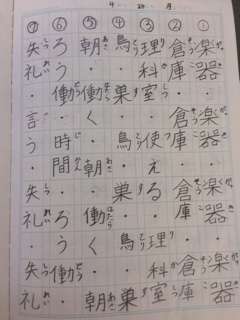 ① 楽器・楽器・楽器・楽器
② 倉庫・倉庫・倉庫・倉庫
③ 理科室・使える・理科室
④ 鳥・巣・鳥・巣・鳥・巣
⑤ 朝・働く・朝・働く・朝
⑥ ろう働・時間・ろう働・
⑦ 失礼・言う・失礼・失礼